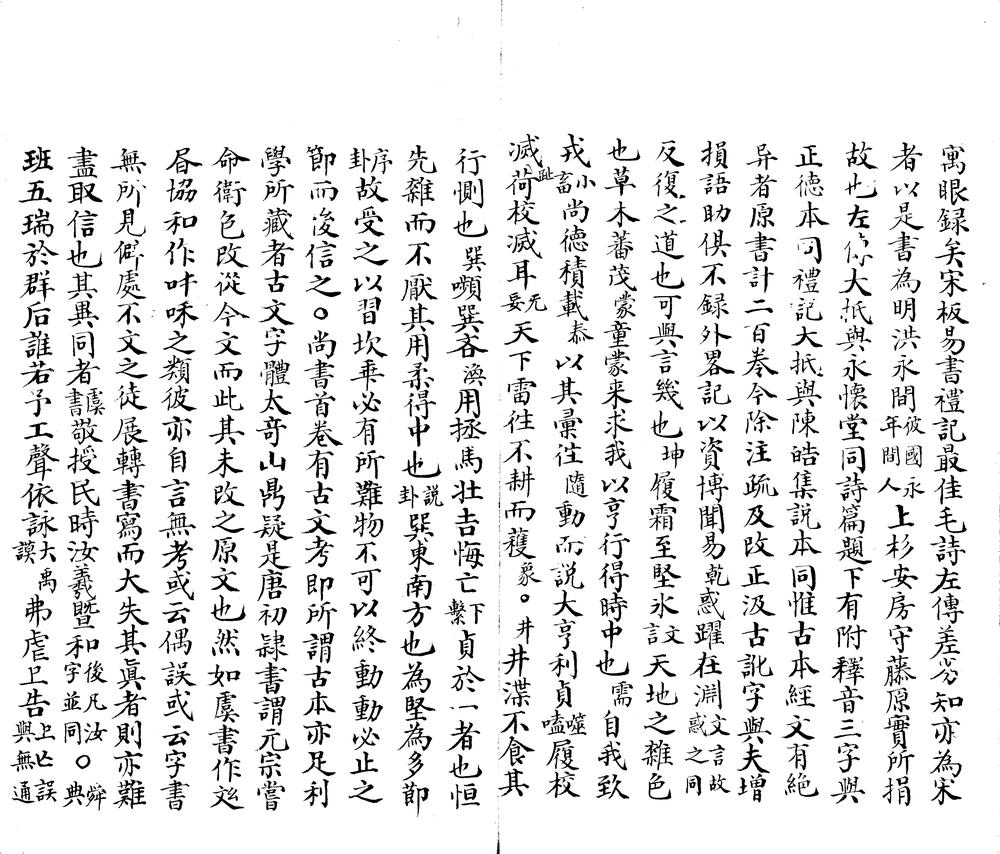 寓眼録矣宋板易書禮記最佳毛詩左傳差劣知亦為宋
者以是書為明洪永間彼國永年間人上杉安房守藤原實所捐
故也左傳大抵與永懷堂同詩篇題下有附釋音三字與
正德本同禮記大抵與陳皓集説本同惟古本經文有絶
异者原書計二百卷今除注疏及改正汲古訛字與夫增
損語助俱不録外畧記以資博聞易乾惑躍在淵文言故惑之同
反復之道也可與言幾也坤履霜至堅氷文言天地之雜色
也草木蕃茂蒙童蒙来求我以亨行得時中也需自我致
戎小畜尚德積載泰以其彙往隨動而説大亨利貞噬嗑履校
滅趾荷校滅耳无妄天下雷往不耕而穫象。井井渫不食其
行惻也巽嚬巽吝渙用拯馬壯吉悔亡下繫貞於一者也恒
先雜而不厭其用柔得中也説卦巽東南方也為堅為多節
序卦故受之以習坎乖必有所難物不可以終動動必止之
節而後信之。尚書首卷有古文考即所謂古本亦足利
學所藏者古文字體太奇山鼎疑是唐初隷書謂元宗嘗
命衛色改從今文而此其未改之原文也然如虞書作
昏協和作叶咊之類彼亦自言無考或云偶誤或云字書
無所見僻處不文之徒展轉書寫而大失其眞者則亦難
盡取信也其異同者虞書敬授民時汝羲暨和後凡汝字並同。舜典
班五瑞於群后誰若予工聲依詠大禹謨弗虐上告上亡誤與無通